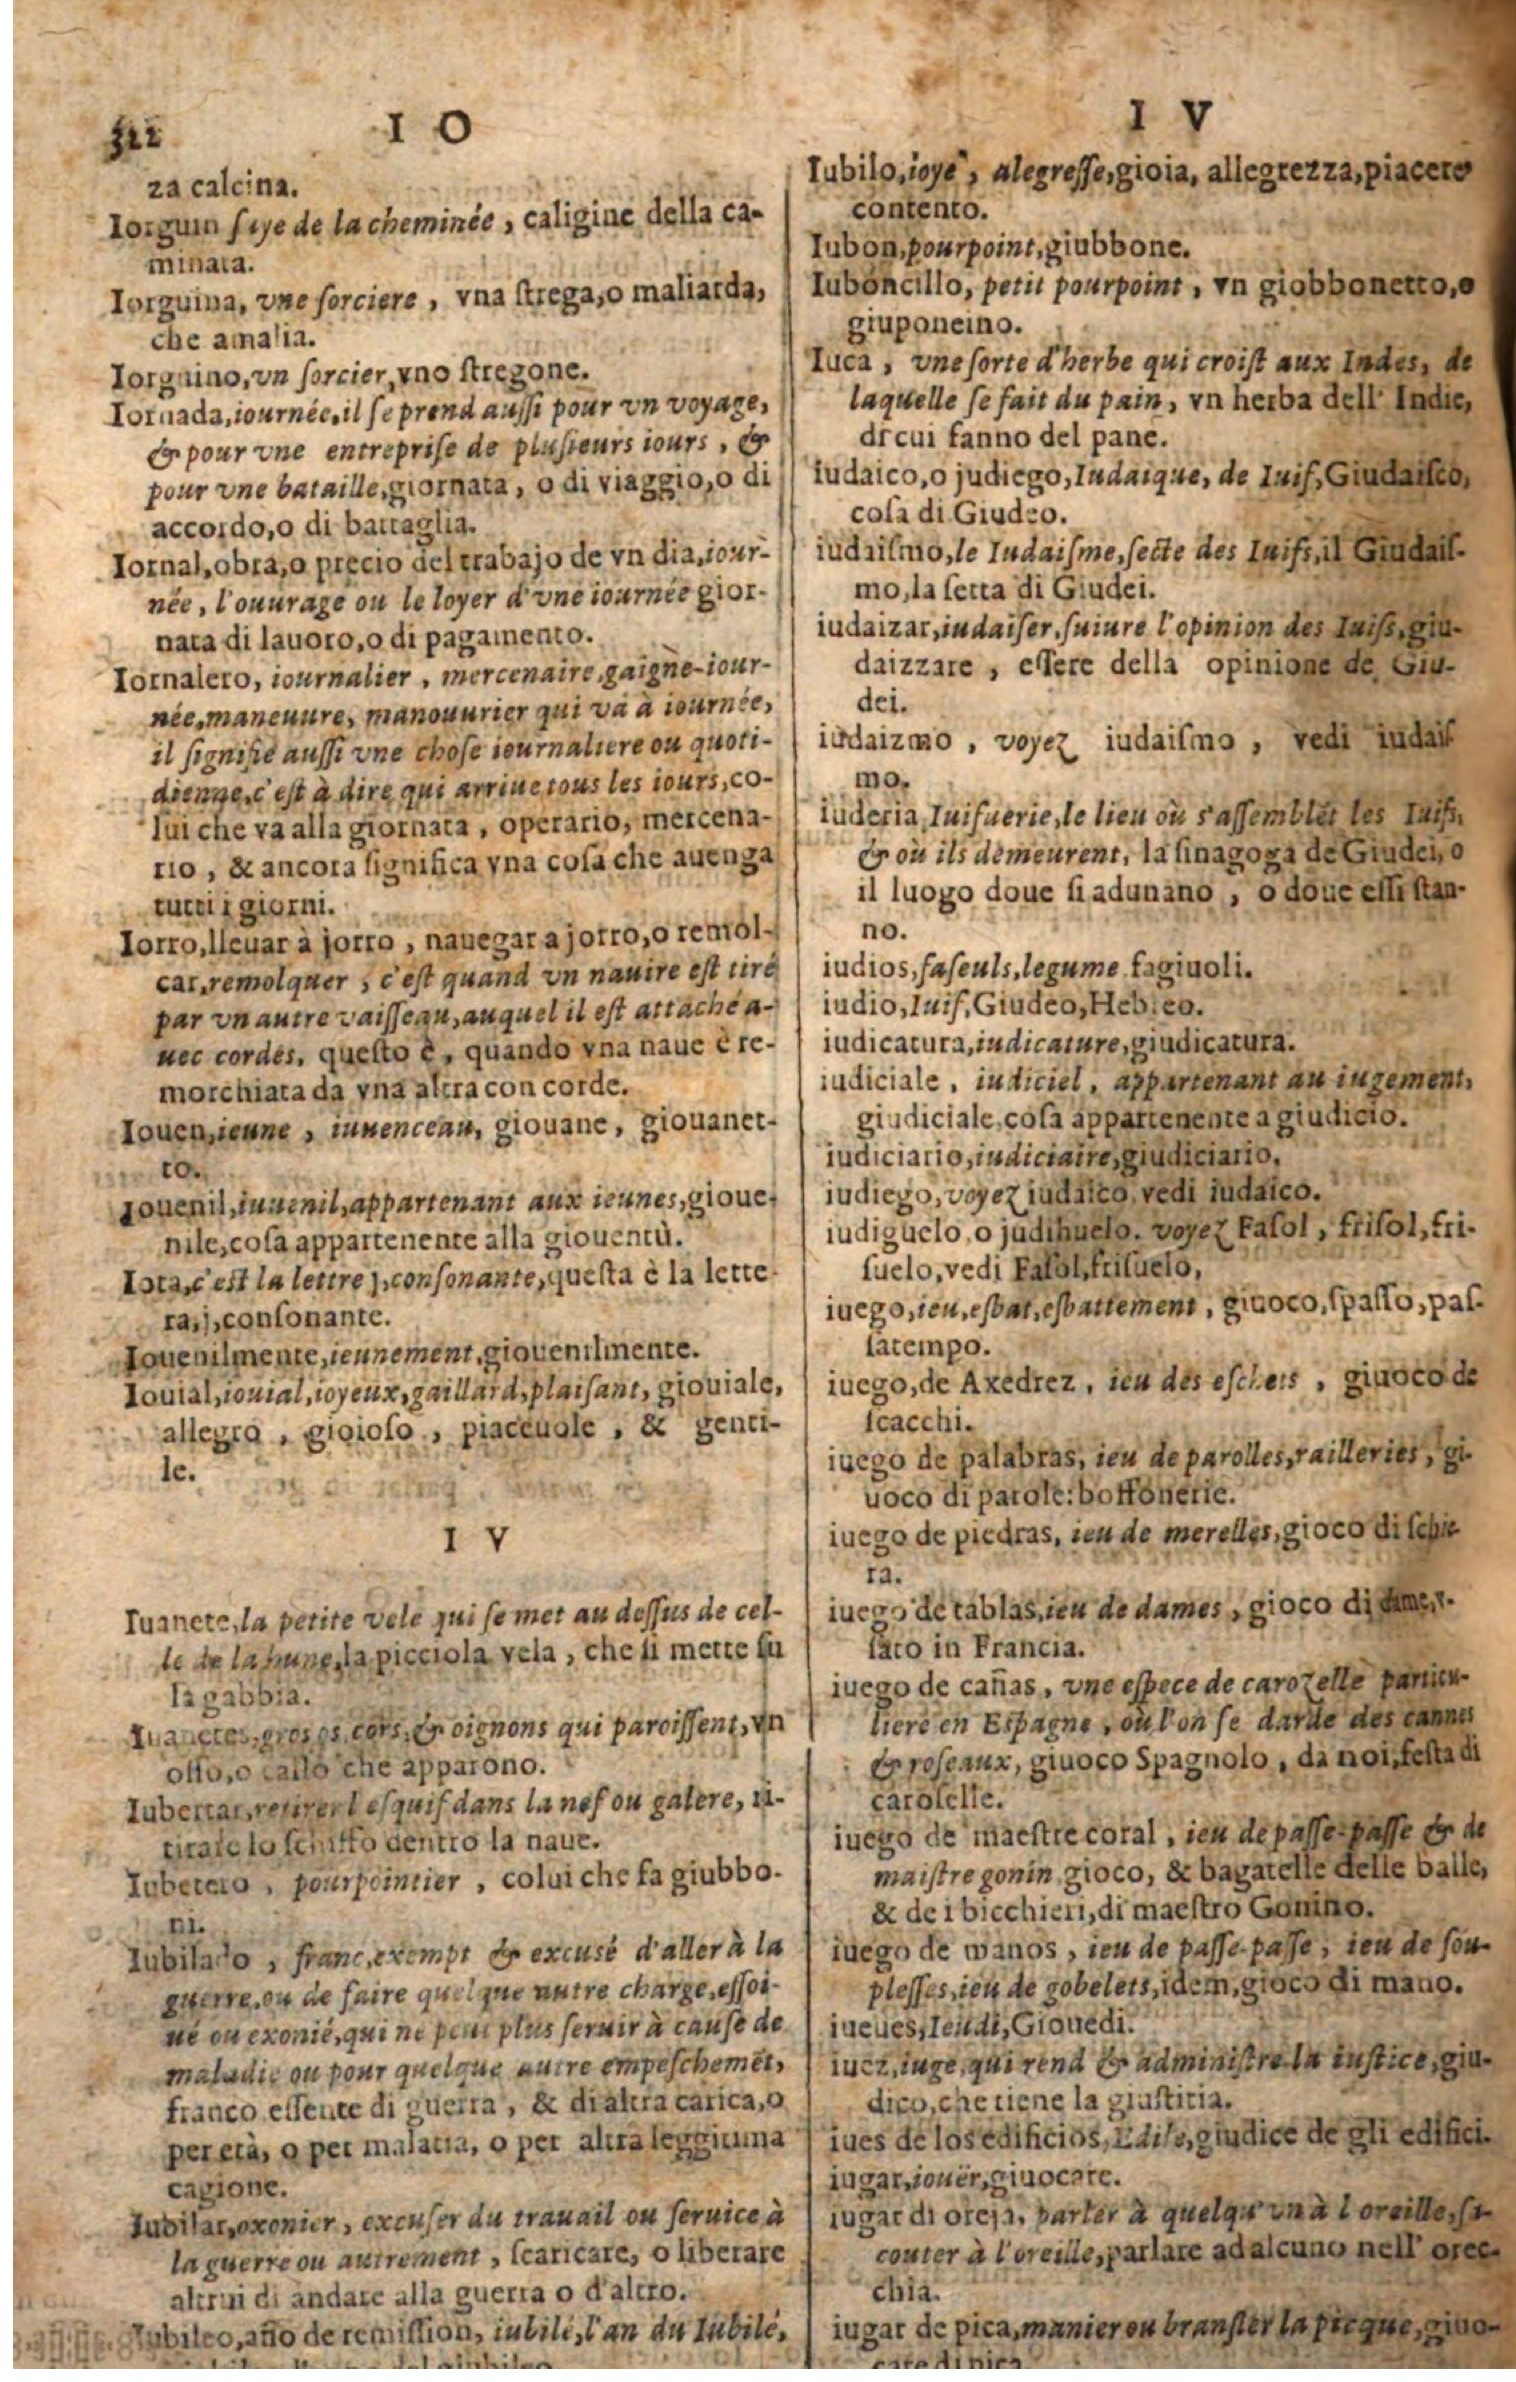 322
I O
za calcina.
Iorguin suye de la cheminée, caligine della ca-
minata.
Iorguina, vne sorciere, vna strega, o maliarda,
che amalia.
Iorguino, vn sorcier, vno stregone.
Iornada, iournée, il se prend aussi pour vn voyage,
& pour vne entreprise de plusieurs iours, &
pour vne bataille, giornata, o di viaggio, o di
accordo, o di battaglia.
Iornal, obra, o precio del trabajo de vn dia, iour-
née, l'ouurage ou le loyer d'vne iournée gior-
nata di lauoro, o di pagamento.
Iornalero, iournalier, mercenaire, gaigne-iour-
née, maneuure, manouurier qui va à iournée,
il signifie aussi vne chose iournaliere ou quoti-
dienne, c'est à dire qui arriue tous les iours, co-
lui che va alla giornata, operario, mercena-
rio, & ancora significa vna cosa che auenga
tutti i giorni.
Iorro, lleuar à jorro, nauegar a jorro, o remol-
car, remolquer, c'est quand vn nauire est tiré
par vn autre vaisseau, auquel il est attaché a-
uec cordes, questo è, quando vna naue è re-
morchiata da vna altra con corde.
Iouen, ieune, iuuenceau, giouane, giouanet-
to.
Iouenil, iuuenil, appartenant aux ieunes, gioue-
nile, cosa appartenente alla giouentù.
Iota, c'est la lettre j, consonante, questa è la lette-
ra, j, consonante.
Iouenilmente, ieunement, giouenilmente.
Iouial, iouial, ioyeux, gaillard, plaisant, giouiale,
allegro, gioioso, piaceuole, & genti-
le.
I V
Iuanete, la petite vele qui se met au dessus de cel-
le de la hune, la picciola vela, che si mette su
la gabbia.
Iuanetes, gros os, cors, & oignons qui paroissent, vn
osso, o callo che apparono.
Iubertar, retirer l'esquif dans la nef ou galere, ri-
tirare lo schiffo dentro la naue.
Iubetero, pourpointier, colui che fa giubbo-
ni.
Iubilado, franc, exempt & excusé d'aller à la
guerre, ou de faire quelque autre charge, essoi-
né ou exonié, qui ne peut plus seruir à cause de
maladie ou pour quelque autre empeschemēt,
franco essente di guerra, & di altra carica, o
per età, o per malatia, o per altra leggitima
cagione.
Iubilar, oxonier, excuser du trauail ou seruice à
la guerre ou autrement, scaricare, o liberare
altrui di andare alla guerra o d'altro.
Iubileo, año de remission, iubilé, l'an du Iubilé,
I V
Iubilo, ioye, alegresse, gioia, allegrezza, piacere
contento.
Iubon, pourpoint, giubbone.
Iuboncillo, petit pourpoint, vn giobbonetto, o
giuponcino.
Iuca, vne sorte d'herbe qui croist aux Indes, de
laquelle se fait du pain, vn herba dell' Indie,
di cui fanno del pane.
iudaico, o judiego, Iudaique, de Iuif, Giudaisco,
cosa di Giudeo.
iudaismo, le Iudaisme, secte des Iuifs, il Giudais-
mo, la setta di Giudei.
iudaizar, iudaiser, suiure l'opinion des Iuifs, giu-
daizzare, essere della opinione de Giu-
dei.
iudaizmo, voyez iudaismo, vedi iudais
mo.
iuderia, Iuifuerie, le lieu où s'assemblēt les Iuifs,
& où ils demeurent, la sinagoga de Giudei, o
il luogo doue si adunano, o doue essi stan-
no.
iudios, faseuls, legume fagiuoli.
iudio, Iuif, Giudeo, Hebreo.
iudicatura, iudicature, giudicatura.
iudiciale, iudiciel, appartenant au iugement,
giudiciale, cosa appartenente a giudicio.
iudiciario, iudiciaire, giudiciario.
iudiego, voyez iudaico, vedi iudaico.
iudiguelo, o judihuelo. voyez Fasol, frisol, fri-
suelo, vedi Fasol, frisuelo,
iuego, ieu, esbat, esbattement, giuoco, spasso, pas-
satempo.
iuego, de Axedrez, ieu des eschets, giuoco de
scacchi.
iuego de palabras, ieu de parolles, railleries, gi-
uoco di parole: boffonerie.
iuego de piedras, ieu de merelles, gioco di schie
ra.
iuego de tablas, ieu de dames, gioco di dame, v-
sato in Francia.
iuego de cañas, vne espece de carozelle particu-
liere en Espagne, où l'on se darde des cannes
& roseaux, giuoco Spagnolo, da noi, festa di
caroselle.
iuego de maestre coral, ieu de passe-passe & de
maistre gonin gioco, & bagatelle delle balle,
& de i bicchieri, di maestro Gonino.
iuego de manos, ieu de passe-passe, ieu de sou-
plesses, ieu de gobelets, idem, gioco di mano.
iueues, Ieudi, Giouedi.
iuez, iuge, qui rend & administre la iustice, giu-
dico, che tiene la giustitia.
iues de los edificios, Edile, giudice de gli edifici.
iugar, iouër, giuocare.
iugar di oreja, parler à quelqu'vn à l'oreille, s'a-
couter à l'oreille, parlare ad alcuno nell' orec-
chia.
iugar de pica, manier ou bransler la picque, giuo-
care di pica.